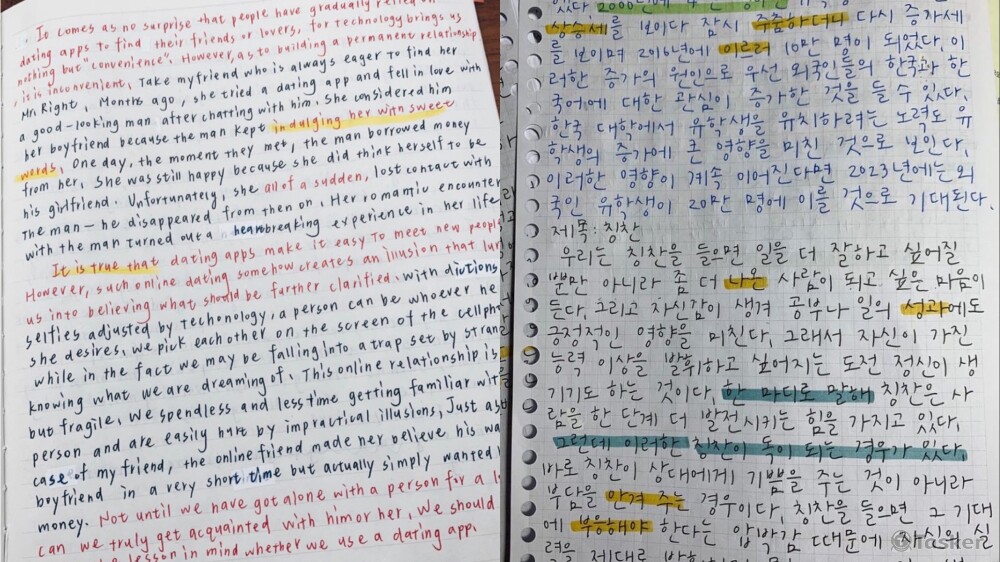 It comes as no surprise that people have gradually relied on
dating apps to find their friends or lovers, for technology brings us
nothing but "convenience". However, as to building a permanent relationship
, it is inconvenient. Take my friend who is always eager to find her
Mr. Right. Months ago, she tried a dating app and fell in love with
a good-looking man after chatting with him. She considered him
her boyfriend because the man kept indulging her with sweet
words. One day, the moment they met, the man borrowed money
from her. She was still happy because she did think herself to be
his girlfriend. Unfortunately, she all of a sudden, lost contact with
the man — he disappeared from then on. Her romamic encounter
with the man turned out a heartbreaking experience in her life.
It is true that dating apps make it easy to meet new people
However, such online dating somehow creates an illusion that
us into believing what should be further clarified. with
selfies adjusted by techonology, a person can be whoever he
she desires, we pick each other on the screen of the cellph
while in the fact we may be falling into a trap set by stran
knowing what we are dreaming of. This online relationship is
but fragile, we spendless and less time getting familiar wit
person and are easily hurt by impractical illusions, Just as
case of my friend, the online friend made her believe his wa
boyfriend in a very short time but actually simply wanted
money. Not until we have got alone with a person for a lo
can we truly get acquainted with him or her, we should
lesson in mind whether we use a dating app.
있다. 2000년에
상승세를 보이다 잠시 주춤하더니 다시 증가세
를 보이며 2016년에 이르러 10만 명이 되었다. 이
러한 증가의 원인으로 우선 외국인들의 한국과 한
국어에 대한 관심이 증가한 것을 들 수 있다.
한국 대학에서 유학생을 유치하려는 노력도 유
학생의 증가에 큰 영향을 미친 것으로 보인다.
이러한 영향이 계속 이어진다면 2023년에는 외
국인 유학생이 20만 명에 이를 것으로 기대된다.
제목: 칭찬
우리는 칭찬을 들으면 일을 더 잘하고 싶어질
뿐만 아니라 좀 더 나은 사람이 되고 싶은 마음이
든다. 그리고 자신감이 생겨 공부나 일의 성과에도
긍정적인 영향을 미친다. 그래서 자신이 가진
능력 이상을 발휘하고 싶어지는 도전 정신이 생
기기도 하는 것이다. 한 마디로 말해 칭찬은 사
람을 한 단계 더 발전시키는 힘을 가지고 있다.
그런데 이러한 칭찬이 독이 되는 경우가 있다.
바로 칭찬이 상대에게 기쁨을 주는 것이 아니라
부담을 안겨 주는 경우이다. 칭찬을 들으면 그 기대
에 부응해야 한다는 압박감 때문에 자신의 실
력을 제대로
Tasker